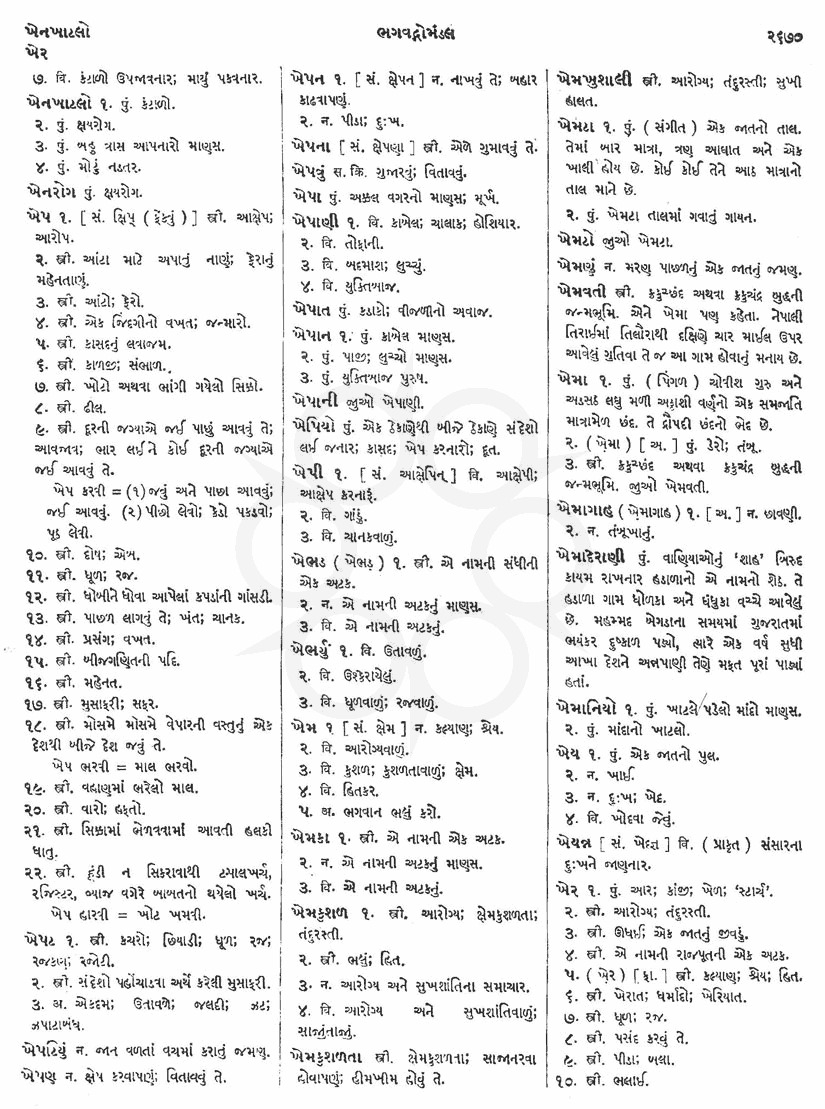 ખેનખાટલો
ખેર
ભગવદ્ગોમંડલ
૨૬૭૦
૭. વિ. કંટાળો ઉપજાવનાર; માર્યું પકવનાર.
ખેનખાટલો ૧. પું. કંટાળો.
૨. પું. ક્ષયરોગ.
૩. પું. બહુ ત્રાસ આપનારો માણસ.
૪. પું. મોટું નડતર.
ખેનરોગ પું. ક્ષયરોગ.
ખેપ ૧. [ સં. ક્ષિપ્ ( ફેંકવું ) ] સ્ત્રી. આક્ષેપ;
આરોપ.
૨. સ્ત્રી. આંટા માટે અપાતું નાણું; ફેરાનું
મહેનતાણું.
૩. સ્ત્રી. આંટો; ફેરો.
૪. સ્ત્રી. એક જિંદગીનો વખત; જન્મારો.
૫. સ્ત્રી. કાસદનું લવાજમ.
૬. સ્ત્રી. કાળજી; સંભાળ.
૭. સ્ત્રી. ખોટો અથવા ભાંગી ગયેલો સિક્કો.
૮. સ્ત્રી. ઢીલ.
૯. સ્ત્રી. દૂરની જગ્યાએ જઈ પાછું આવવું તે;
આવજાવ; ભાર લઈને કોઈ દૂરની જગ્યાએ
જઈ આવવું તે.
ખેપ કરવી = (૧) જવું અને પાછા આવવું;
જઈ આવવું. (૨) પીછો લેવો; કેડો પકડવો;
પૂઠ લેવી.
૧૦. સ્ત્રી. દોષ; એબ.
૧૧. સ્ત્રી. ધૂળ; રજ.
૧૨. સ્ત્રી. ધોબીને ધોવા આપેલાં કપડાંની ગાંસડી.
૧૩. સ્ત્રી. પાછળ લાગવું તે; ખંત; ચાનક.
૧૪. સ્ત્રી. પ્રસંગ; વખત.
૧૫. સ્ત્રી. બીજગણિતની પદિ.
૧૬. સ્ત્રી. મહેનત.
૧૭. સ્ત્રી. મુસાફરી; સફર.
૧૮. સ્ત્રી. મોસમે મોસમે વેપારની વસ્તુનું એક
દેશથી બીજે દેશ જવું તે.
ખેપ ભરવી = માલ ભરવો.
૧૯. સ્ત્રી. વહાણમાં ભરેલો માલ.
૨૦. સ્ત્રી. વારો; હફતો.
૨૧. સ્ત્રી. સિક્કામાં ભેળવવામાં આવતી હલકી
ધાતુ.
૨૨. સ્ત્રી. હૂંડી ન સિકરાવાથી ટપાલખર્ચ,
રજિસ્ટર, વ્યાજ વગેરે બાબતનો થયેલો ખર્ચ.
ખેપ હારવી = ખોટ ખમવી.
ખેપટ ૧. સ્ત્રી. કચરો; છિયાડી; ધૂળ; રજ;
રજકણ; રજોડી.
૨. સ્ત્રી. સંદેશો પહોંચાડવા અર્થે કરેલી મુસાફરી.
૩. અ. એકદમ; ઉતાવળે; જલદી; ઝટ;
ઝપાટાબંધ.
ખેપટિયું ન. જાન વળતાં વચમાં કરાતું જમણ.
ખેપણ ન. ક્ષેપ કરવાપણું; વિતાવવું તે.
ખેપન ૧. [ સં. ક્ષેપન ] ન. નાખવું તે; બહાર
કાઢવાપણું.
૨. ન. પીડા; દુઃખ.
ખેપના [ સં. ક્ષેપણા ] સ્ત્રી. એળે ગુમાવવું તે.
ખેપવું સ. ક્રિ. ગુજારવું; વિતાવવું.
ખેપા પું. અક્કલ વગરનો માણસ; મૂર્ખ.
ખેપાણી ૧. વિ. કાબેલ; ચાલાક; હોશિયાર.
૨. વિ. તોફાની.
૩. વિ. બદમાશ; લુચ્ચું.
૪. વિ. યુક્તિબાજ.
ખેપાત પું. કડાકો; વીજળીનો અવાજ.
ખેપાન ૧. પું. કાબેલ માણસ.
૨. પું. પાજી; લુચ્ચો માણસ.
૩. પું. યુક્તિબાજ પુરુષ.
ખેપાની જુઓ ખેપાણી.
ખેપિયો પું. એક ઠેકાણેથી બીજે ઠેકાણે સંદેશો
લઈ જનાર; કાસદ; ખેપ કરનારો; દૂત.
ખેપી ૧. [ સં. આક્ષેપિન્ ] વિ. આક્ષેપી;
આક્ષેપ કરનારું.
૨. વિ. ગાંડું.
૩. વિ. ચાનકવાળું.
ખેભડ ( ખેભડ઼ ) ૧. સ્ત્રી. એ નામની સંધીની
એક અટક.
૨. ન. એ નામની અટકનું માણસ.
૩. વિ. એ નામની અટકનું.
ખેભર્યું ૧. વિ. ઉતાવળું.
૨. વિ. ઉશ્કેરાયેલું.
૩. વિ. ધૂળવાળું; રજવાળું.
ખેમ ૧ [ સં. ક્ષેમ ] ન. કલ્યાણ; શ્રેય.
૨. વિ. આરોગ્યવાળું.
૩. વિ. કુશળ; કુશળતાવાળું; ક્ષેમ.
૪. વિ. હિતકર.
૫. અ. ભગવાન ભલું કરો.
ખેમકા ૧. સ્ત્રી. એ નામની એક અટક.
૨. ન. એ નામની અટકનું માણસ.
૩. વિ. એ નામની અટકનું.
ખેમકુશળ ૧. સ્ત્રી. આરોગ્ય; ક્ષેમકુશળતા;
તંદુરસ્તી.
૨. સ્ત્રી. ભલું; હિત.
૩. ન. આરોગ્ય અને સુખશાંતિના સમાચાર.
૪. વિ. આરોગ્ય અને સુખશાંતિવાળું;
સાજુંનાજું.
ખેમકુશળતા સ્ત્રી. ક્ષેમકુશળતા; સાજાનરવા
હોવાપણું; હીમખીમ હોવું તે.
ખેમખુશાલી સ્ત્રી. આરોગ્ય; તંદુરસ્તી; સુખી
હાલત.
ખેમટા ૧. પું. ( સંગીત ) એક જાતનો તાલ.
તેમાં બાર માત્રા, ત્રણ આઘાત અને એક
ખાલી હોય છે. કોઈ કોઈ તેને આઠ માત્રાનો
તાલ માને છે.
૨. પું. ખેમટા તાલમાં ગવાતું ગાયન.
ખેમટો જુઓ ખેમટા.
ખેમણું ન. મરણ પાછળનું એક જાતનું જમણ.
ખેમવતી સ્ત્રી. ક્રકુચ્છંદ અથવા ક્રકુચંદ્ર બુદ્ધની
જન્મભૂમિ. એને ખેમા પણ કહેતા. નેપાલી
તિરાઈમાં તિલૌરાથી દક્ષિણે ચાર માઈલ ઉપર
આવેલું ગુતિવા તે જ આ ગામ હોવાનું મનાય છે.
ખેમા ૧. પું. ( પિંગળ ) ચોવીશ ગુરુ અને
અડસઠ લઘુ મળી બ્રાશી વર્ણનો એક સમજાતિ
માત્રામેળ છંદ. તે દ્રૌપદી છંદનો ભેદ છે.
૨. ( ખેમા ) [ અ. ] પું. ડેરો; તંબૂ.
૩. સ્ત્રી. ક્રકુચ્છંદ અથવા ક્રકુચંદ્ર બુદ્ધની
જન્મભૂમિ. જુઓ ખેમવતી.
ખેમાગાહ ( ખેમાગાહ ) ૧. [ અ. ] ન. છાવણી.
૨. ન. તંબૂખાનું.
ખેમાદેરાણી પું. વાણિયાઓનું 'શાહ' બિરુદ
કાયમ રાખનાર હડાળાનો એ નામનો શેઠ. તે
હડાળા ગામ ધોળકા અને ધંધુકા વચ્ચે આવેલું
છે. મહમ્મદ બેગડાના સમયમાં ગુજરાતમાં
ભયંકર દુષ્કાળ પડ્યો, ત્યારે એક વર્ષ સુધી
આખા દેશને અન્નપાણી તેણે મફત પૂરાં પાડ્યાં
હતાં.
ખેમાનિયો ૧. પું. ખાટલે પડેલો માંદો માણસ.
૨. પું. માંદાનો ખાટલો.
ખેય ૧. પું. એક જાતનો પુલ.
૨. ન. ખાઈ.
૩. ન. દુઃખ; ખેદ.
૪. વિ. ખોદવા જેવું.
ખેયન્ન [ સં. ખેદજ્ઞ ] વિ. ( પ્રાકૃત ) સંસારના
દુઃખને જાણનાર.
ખેર ૧. પું. આર; કાંજી; ખેળ; 'સ્ટાર્ચ'.
૨. સ્ત્રી. આરોગ્ય; તંદુરસ્તી.
૩. સ્ત્રી. ઊધઈ; એક જાતનું જીવડું.
૪. સ્ત્રી. એ નામની રાજપૂતની એક અટક.
૫. ( ખેર ) [ ફા. ] સ્ત્રી. કલ્યાણ; શ્રેય; હિત.
૬. સ્ત્રી. ખેરાત; ધર્માદો; ખેરિયાત.
૭. સ્ત્રી. ધૂળ; રજ.
૮. સ્ત્રી. પસંદ કરવું તે.
૯. સ્ત્રી. પીડા; બલા.
૧૦. સ્ત્રી. ભલાઈ.